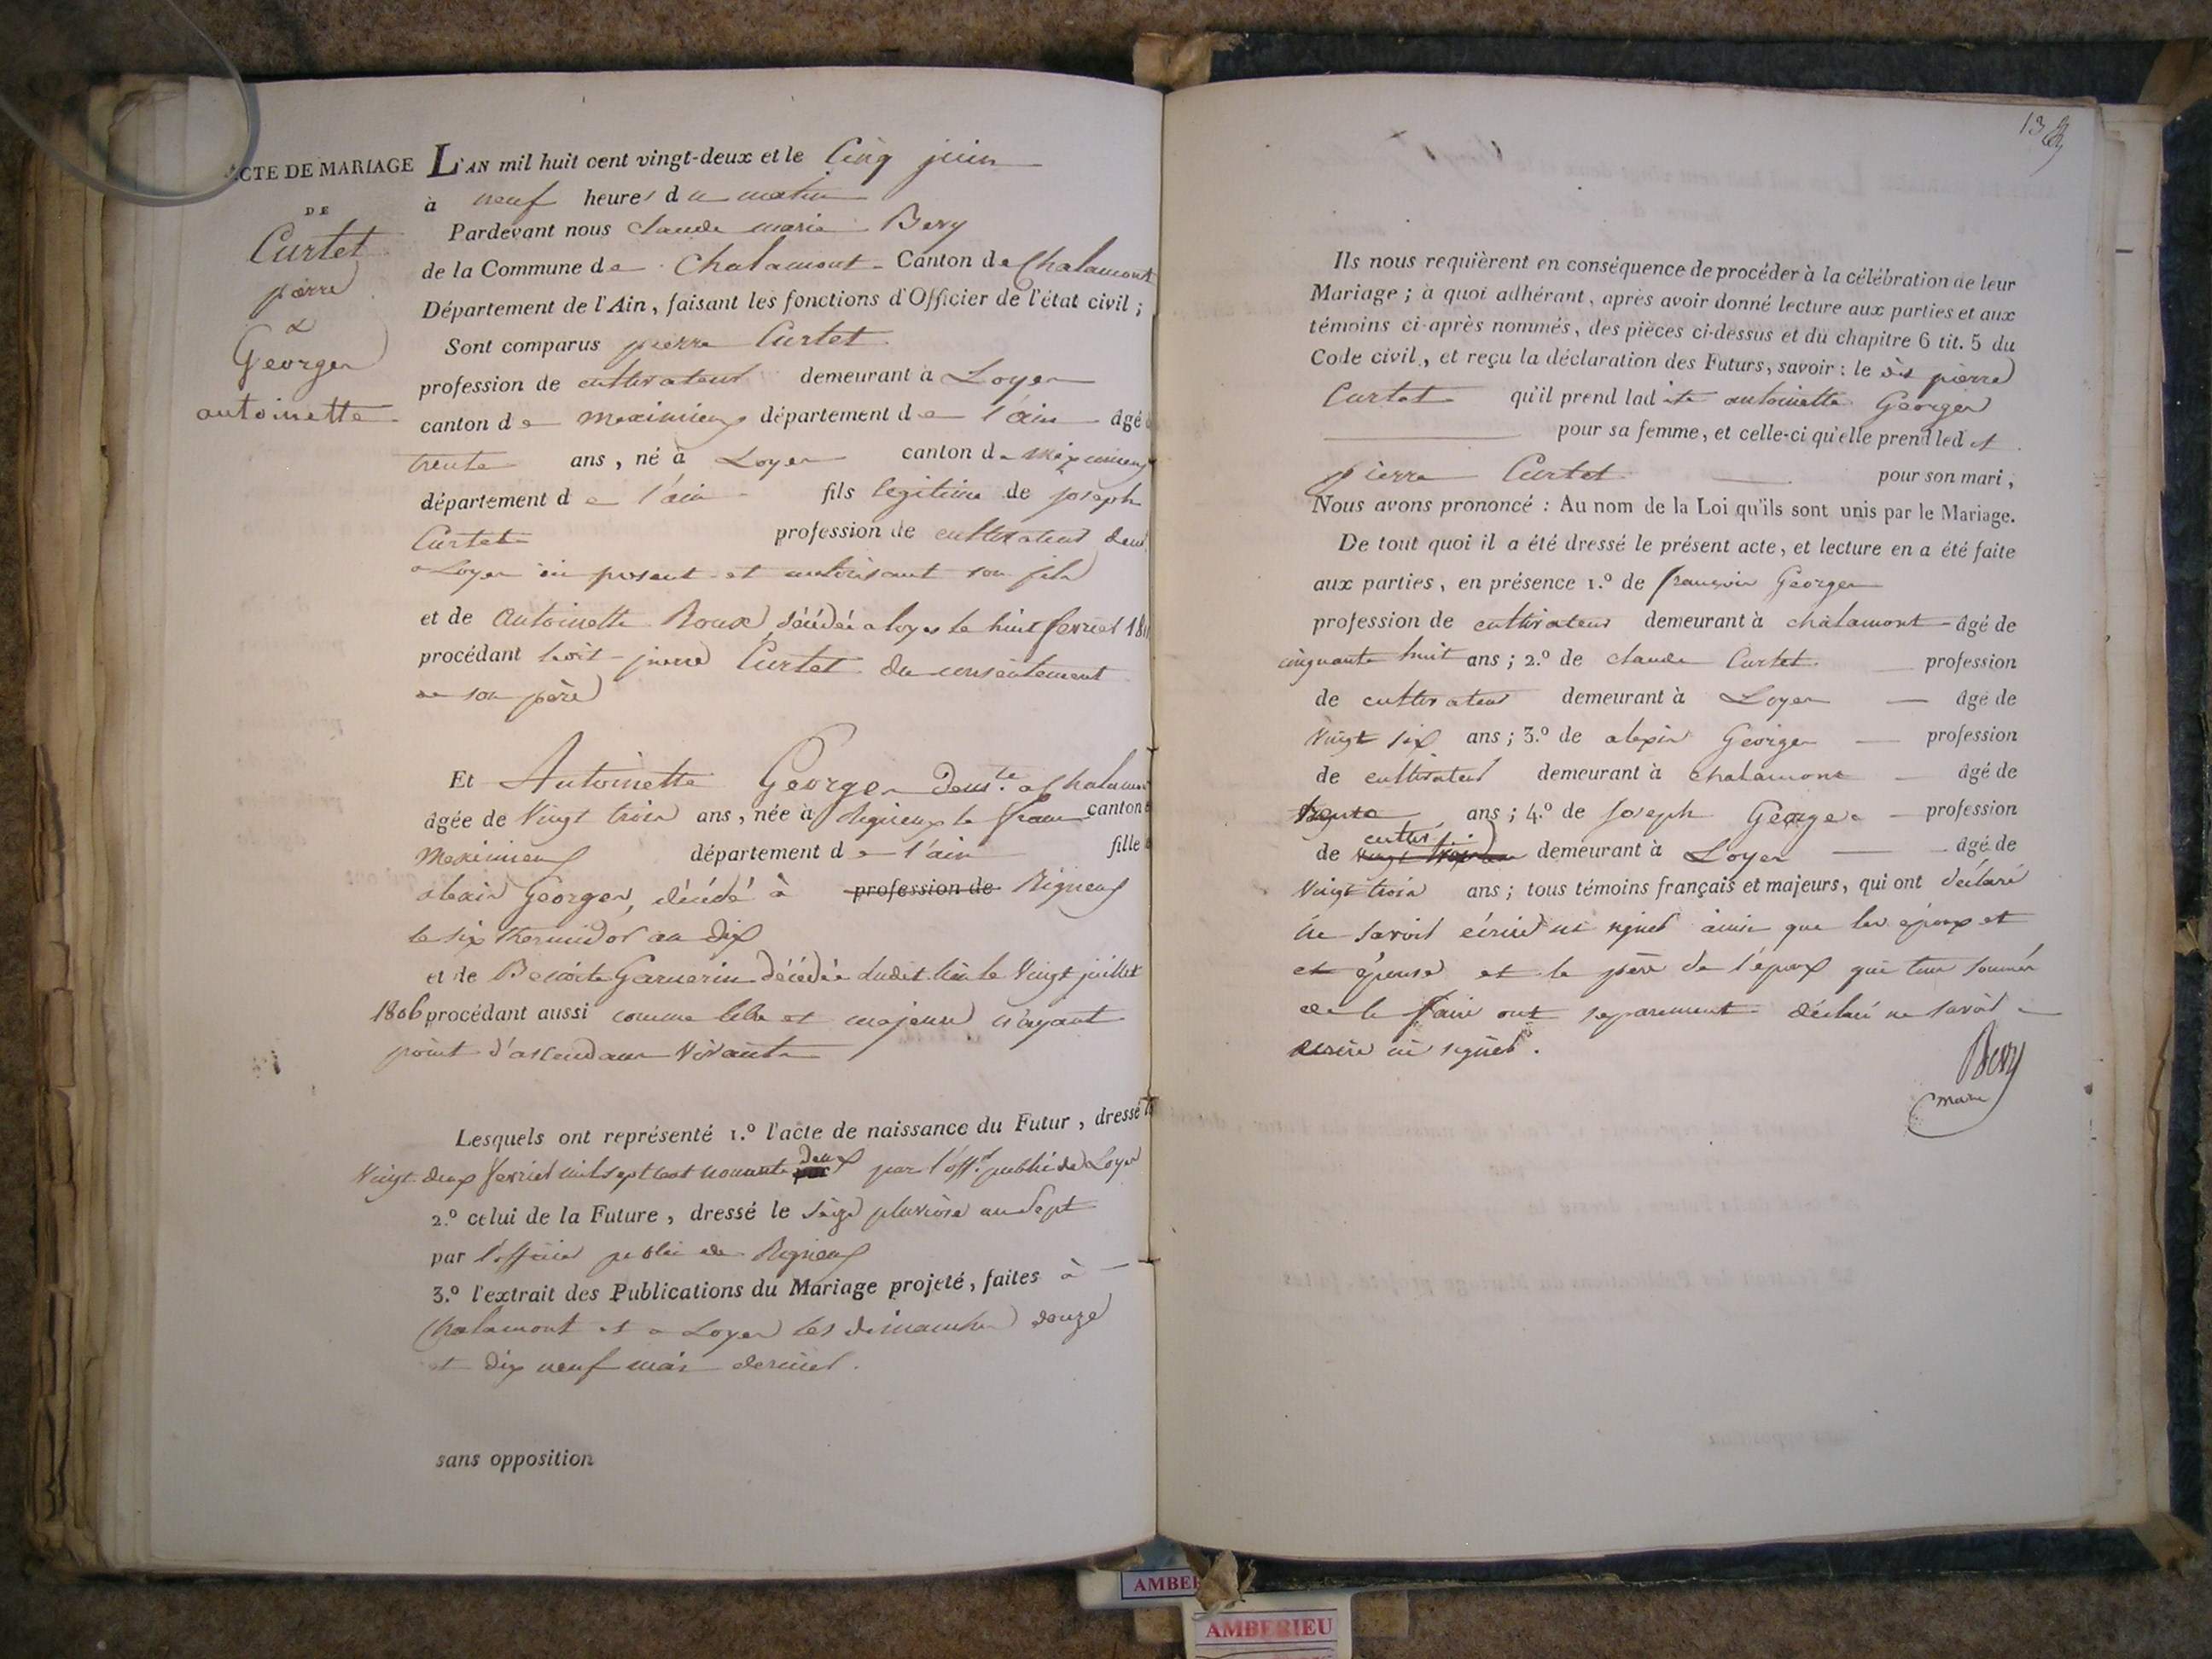 ACTE DE MARIAGE
DE
Curtet
pierre
&
Georges
antoinette
L'AN mil huit cent vingt-deux et le Cinq juin
à neuf heures du matin
Pardevant nous Claude marie Bery
de la Commune de Chalamont Canton de Chalamont
Département de l'Ain, faisant les fonctions d'Officier de l'état civil;
Sont comparus pierre Curtet
profession de cultivateur demeurant à Loyes
canton de meximieux département de l'ain âgé
trente ans, né à Loyes canton de Meximieux
département de l'ain fils legitime de joseph
Curtet profession de cultivateur dem
a Loyes ici present et autorisant son fils
et de Antoinette Roux décédée a loyes le huit fevrier 18
procédant ledit pierre Curtet du consentement
de son père
Et Antoinette Georges demte a Chalamont
âgée de Vingt trois ans, née à Rignieux le franc canton
Meximieux département de l'ain fille
alexis Georges, décédé à profession de Rignieux
le six thermidor an dix
et de Benoite Garnerin décédée dudit lieu le Vingt juillet
1806 procédant aussi comme libre et majeure n'ayant
point d'ascendans vivants
Lesquels ont représenté 1.º l'acte de naissance du Futur, dressé le
Vingt deux fevrier mil sept cent nonante deux par l'off. public de Loyes
2.º celui de la Future, dressé le seize pluviose an Sept
par l'officier public de Rignieux
3.º l'extrait des Publications du Mariage projeté, faites à
Chalamont et a Loyes les dimanches douze
et dix neuf mai dernier.
sans opposition
AMBE
AMBERIEU
13
Ils nous requièrent en conséquence de procéder à la célébration de leur
Mariage; à quoi adhérant, après avoir donné lecture aux parties et aux
témoins ci-après nommés, des pièces ci-dessus et du chapitre 6 tit. 5 du
Code civil, et reçu la déclaration des Futurs, savoir: le dit pierre
Curtet qu'il prend ladite antoinette Georges
pour sa femme, et celle-ci qu'elle prend ledit
pierre Curtet pour son mari,
Nous avons prononcé: Au nom de la Loi qu'ils sont unis par le Mariage.
De tout quoi il a été dressé le présent acte, et lecture en a été faite
aux parties, en présence 1.º de françois Georges
profession de cultivateur demeurant à chalamont âgé de
cinquante huit ans; 2.º de claude Curtet profession
de cultivateur demeurant à Loyes âgé de
Vingt six ans; 3.º de alexis Georges profession
de cultivateur demeurant à chalamont âgé de
trente ans; 4.º de Joseph Georges profession
de cultiv. demeurant à Loyes âgé de
Vingt trois ans; tous témoins français et majeurs, qui ont déclaré
ne savoir écrire ni signer ainsi que les époux et
et épouse et le père de l'époux qui tous sommés
de le faire ont separement déclaré ne savoir
écrire ni signer.
Bery
maire